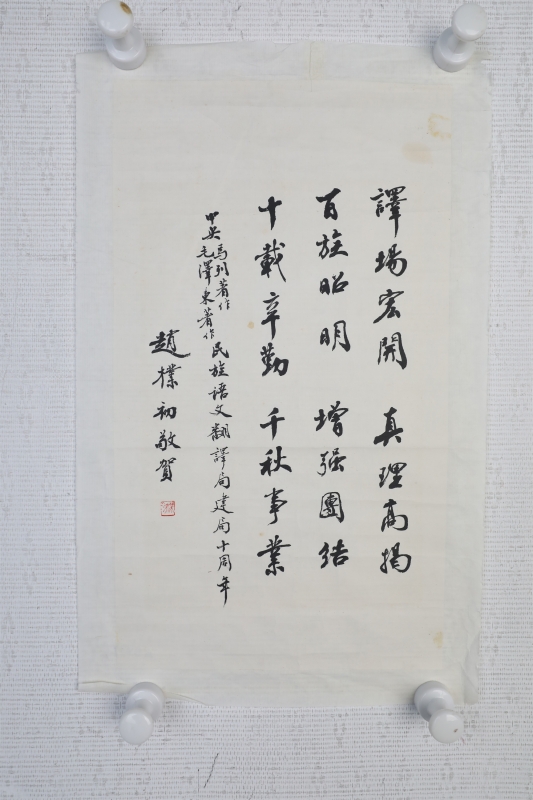 譯場宏開 真理高揭
百族昭明 增强團結
十載辛勤 千秋事業
中央馬列著作毛澤東著作民族語文翻譯局建局十周年
趙樸初敬賀